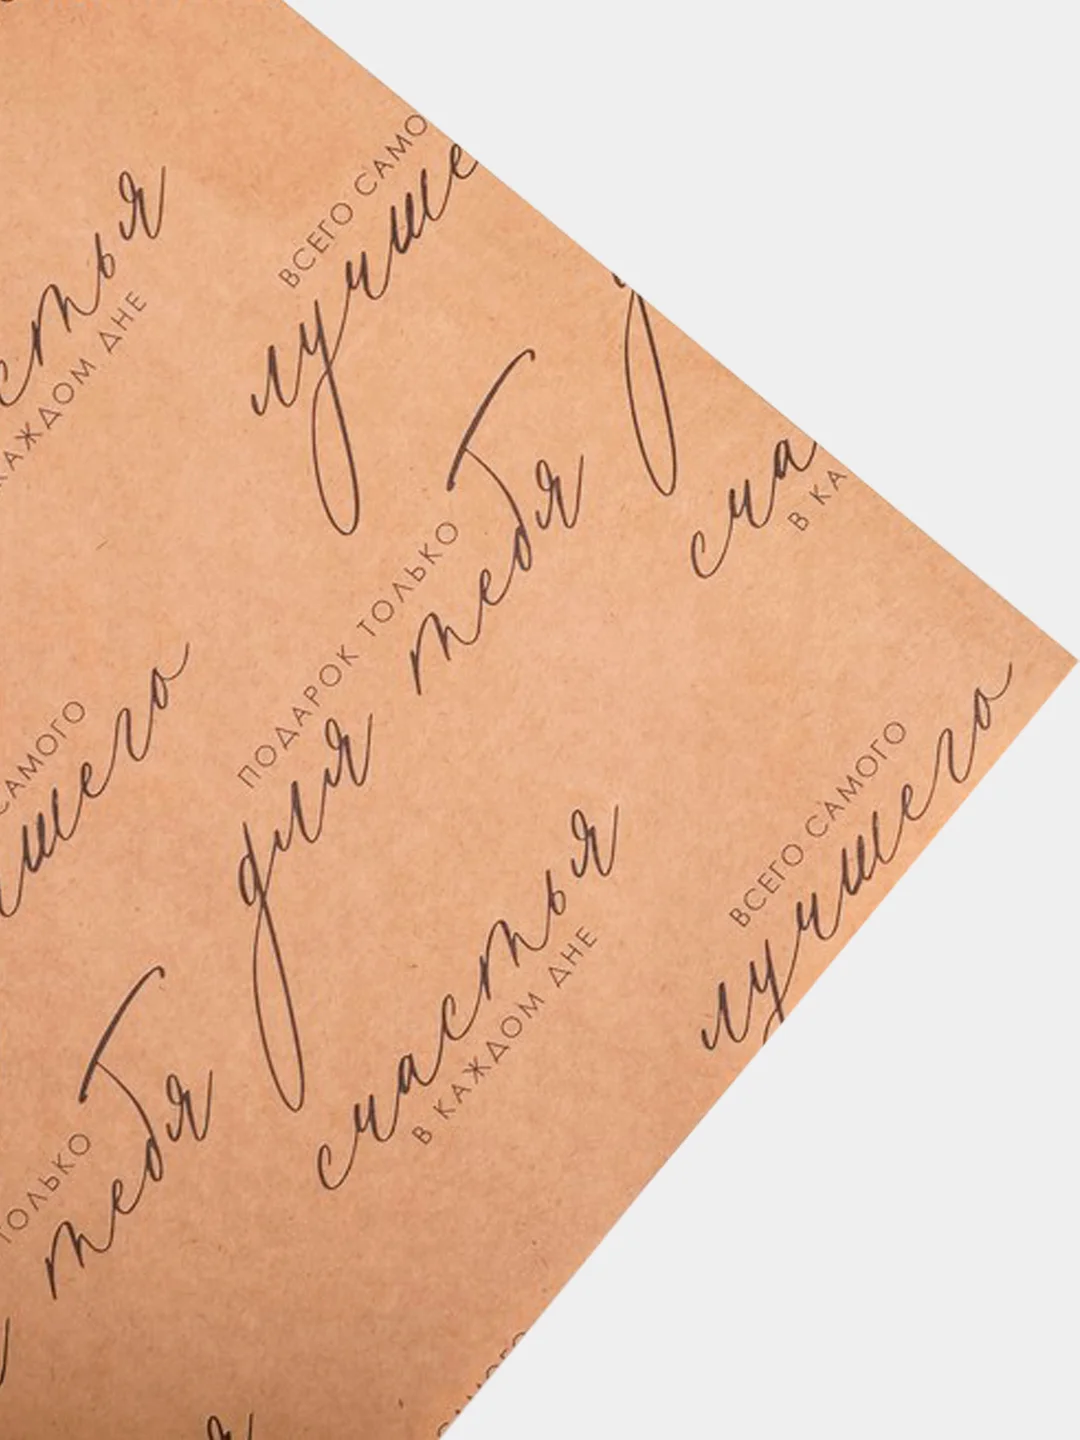 стья
КАЖДОМ ДНЕ
ВСЕГО САМО
лучше
ПОДАРОК ТОЛЬКО
для тебя
сча
В КА
САМОГО
чшего
счастья
В КАЖДОМ ДНЕ
ВСЕГО САМОГО
лучшего
ТОЛЬКО
тебя